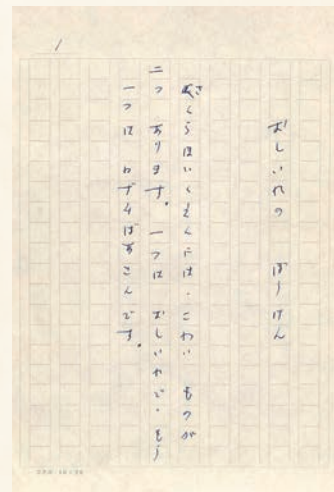 1
おしいれの ぼうけん
さくらほいくえんには、こわい ものが
二つ あります。一つは おしいれで、もう
一つは ねずみばあさんです。